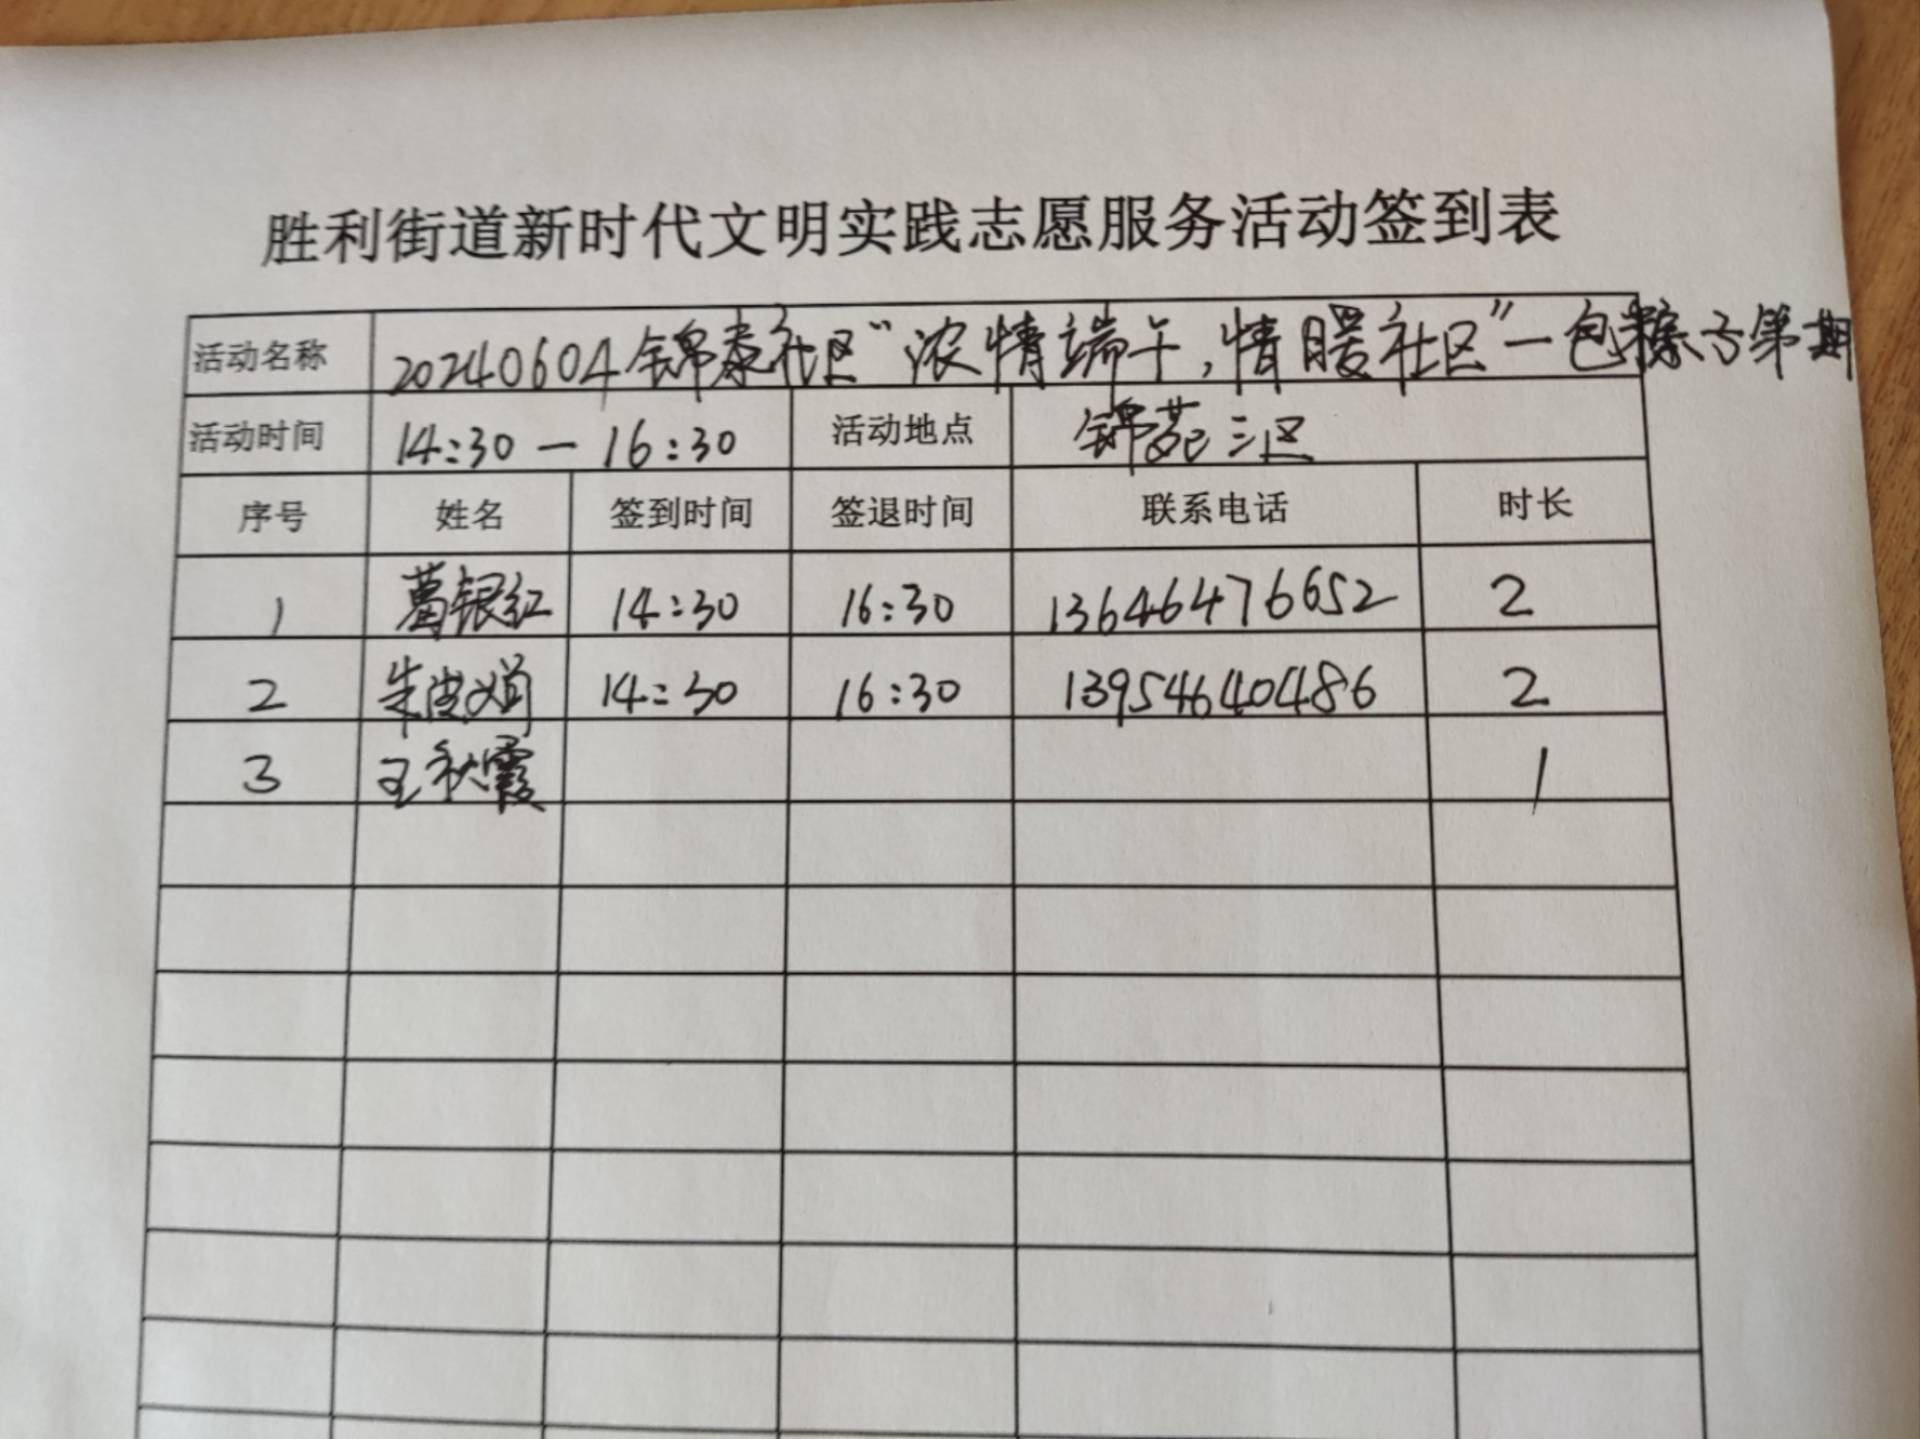 胜利街道新时代文明实践志愿服务活动签到表
活动名称 20240604锦泰社区“浓情端午,情暖社区”一包粽子第期
活动时间 14:30一16:30 活动地点 锦苑三区
序号 姓名 签到时间 签退时间 联系电话 时长
1 葛银红 14:30 16:30 13646476652 2
2 朱 娟 14:30 16:30 13954640486 2
3 王秋霞 1